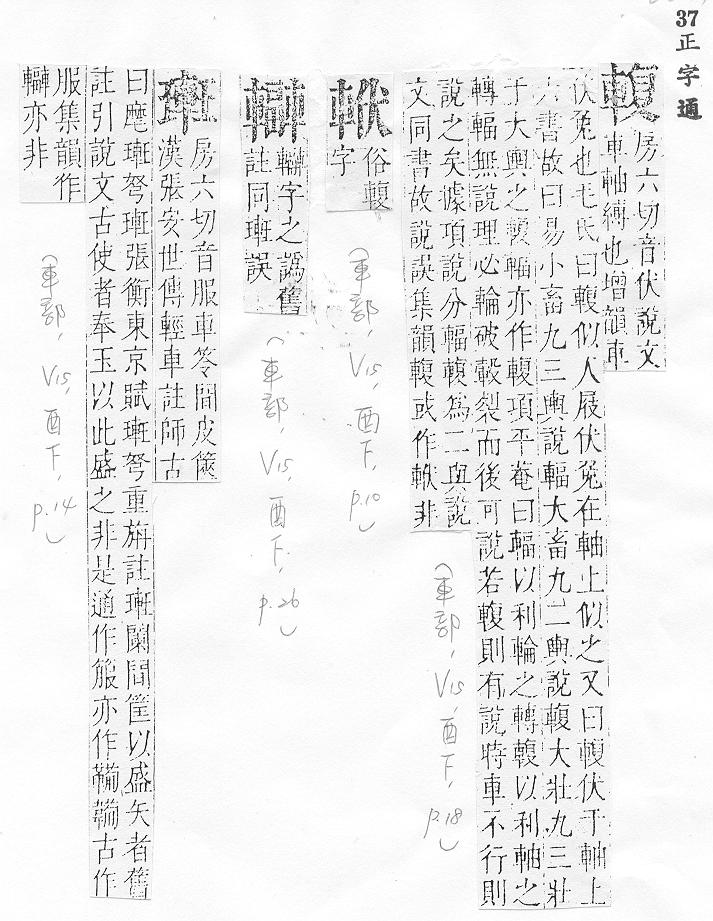 37正字通
輹
房六切音伏說文
車軸縛也增韻車
伏兔也毛氏曰輹似人屐伏兔在軸上似之又曰輹伏于軸上
六書故曰易小畜九三輿說輻大畜九二輿說輹大壯九三壯
于大輿之輹輻亦作輹項平菴曰輻以利輪之轉輹以利軸之
轉輻無說理必輪破轂裂而後可說若輹則有說時車不行則
說之矣據項說分輻輹爲二與說
文同書故說誤集韻輹或作軷非
(車部, V15, 酉下, p.18)
俗輹
字
(車部, V15, 酉下, p.10)
字之譌舊
註同㻞誤
(車部, V15, 酉下, p.26)
㻞
房六切音服車笭間皮篋
漢張安世傳輕車註師古
曰麾㻞弩㻞張衡東京賦㻞弩重旃註㻞闌間筐以盛矢者舊
註引說文古使者奉玉以此盛之非是通作箙亦作鞴古作
服集韻作
亦非
(車部, V15, 酉下, p.14)